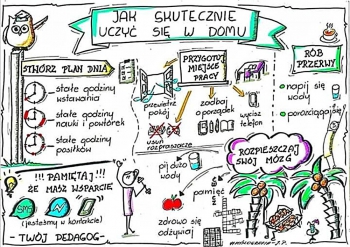 JAK SKUTECZNIE
UCZYĆ SIĘ W DOMU
STWÓRZ PLAN DNIA
stałe godziny
wstawania
stałe godziny
nauki i powtórek
stałe godziny
posiłków
PRZYGOTUJ
MIEJSCE
PRACY
przewietrz
pokój
zadbaj
o porządek
wycisz
telefon
usuń
rozpraszacze
RÓB
PRZERWY
napij się
wody
porozciągaj się
!!! PAMIĘTAJ !!!
ŻE MASZ WSPARCIE
SMS
(jesteśmy w kontakcie)
-TWÓJ PEDAGOG-
ROZPIESZCZAJ
SWÓJ MÓZG
pij dużo
wody
pamięć
zdrowo się
odżywiaj